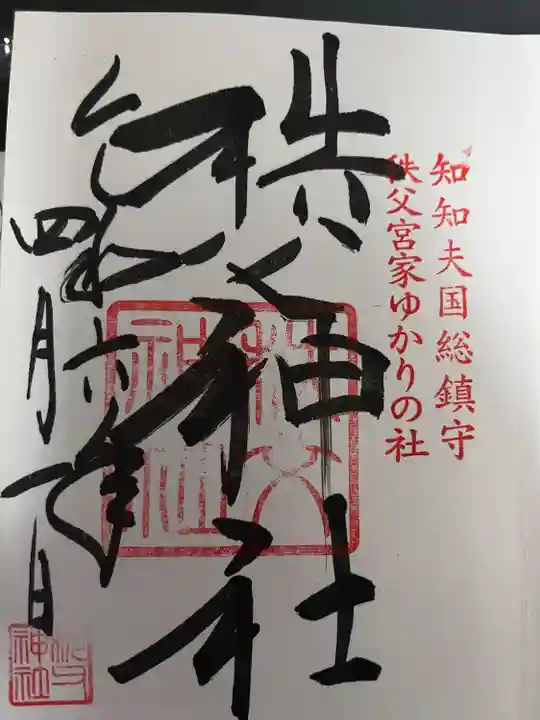 知知夫国総鎮守
秩父宮家ゆかりの社
秩父神社
令和六年
四月 日
秩父神社